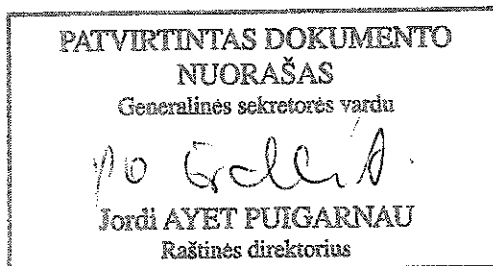 PATVIRTINTAS DOKUMENTO
NUORAŠAS
Generalinės sekretorės vardu
Jordi AYET PUIGARNAU
Raštinės direktorius